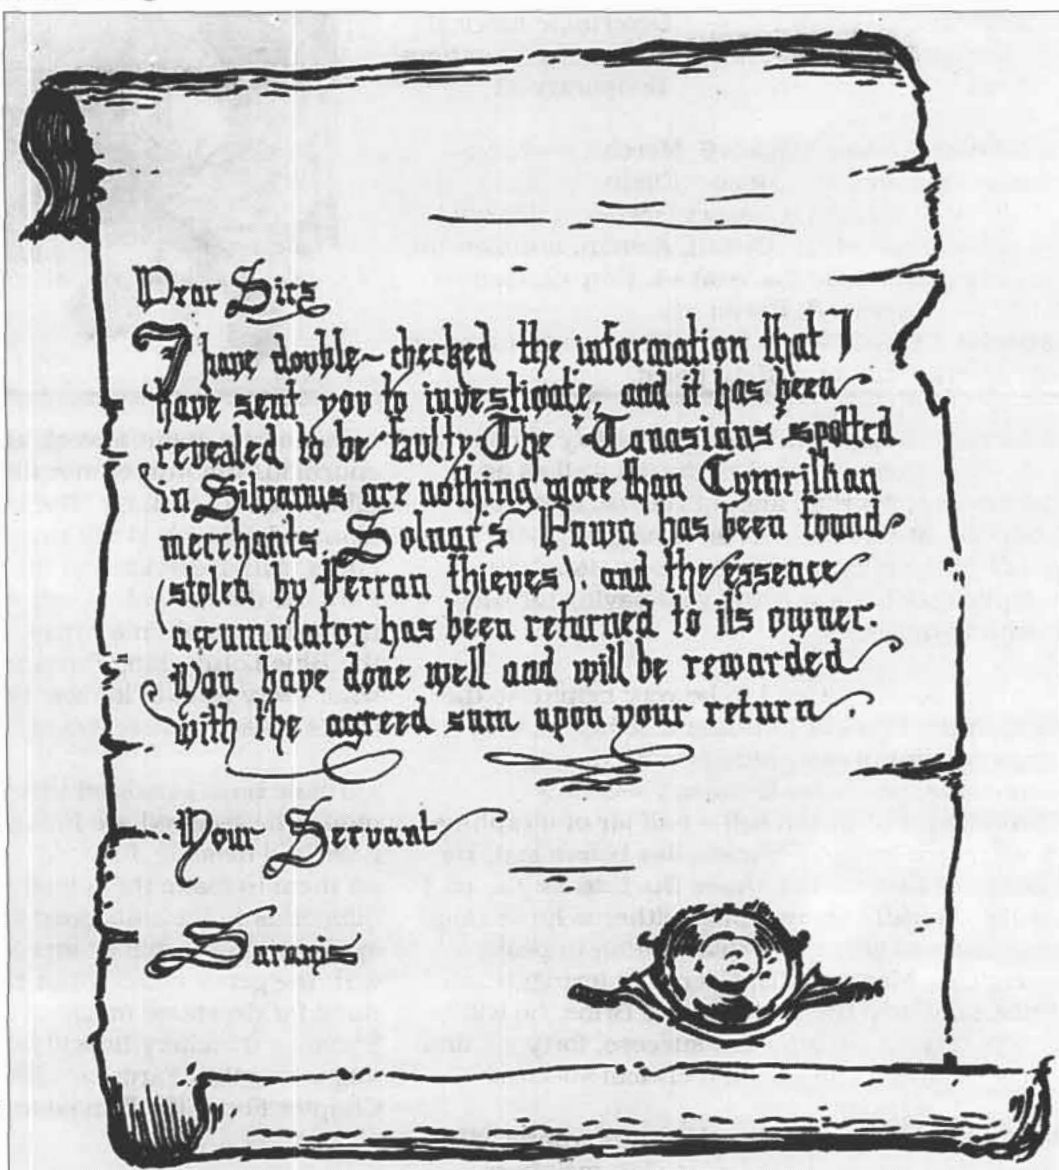 Dear Sirs
I have double-checked the information that I
have sent you to investigate, and it has been
revealed to be faulty. The Tanasians spotted
on Silvanus are nothing more than Cymrillian
merchants. Pawn has been found,
stolen by Ferran thieves, and the essence
accumulator has been returned to its owner.
You have done well and will be rewarded
with the agreed sum upon your return.
Your Servant